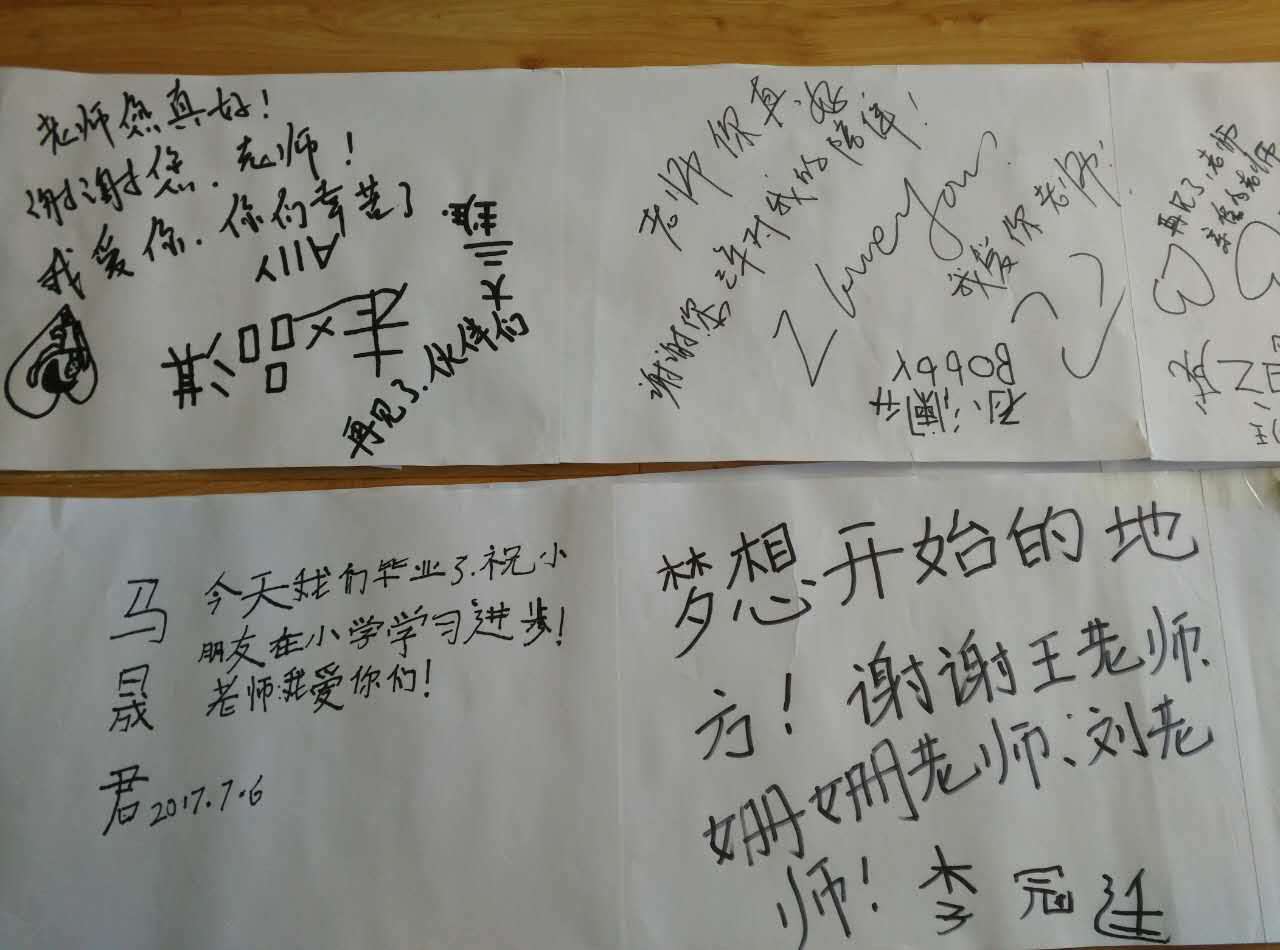 老师您真好！
谢谢您、老师！
我爱你、你们辛苦了
再见了、伙伴们
老师你真好
谢谢你三年对我的陪伴！
I love you
我爱你老师！
Bobby
再见了，老师
马晟君
今天我们毕业了.祝小
朋友在小学学习进步！
老师我爱你们！
2017.7.6
梦想开始的地
方！谢谢王老师、
姗姗老师、刘老
师！李冠廷